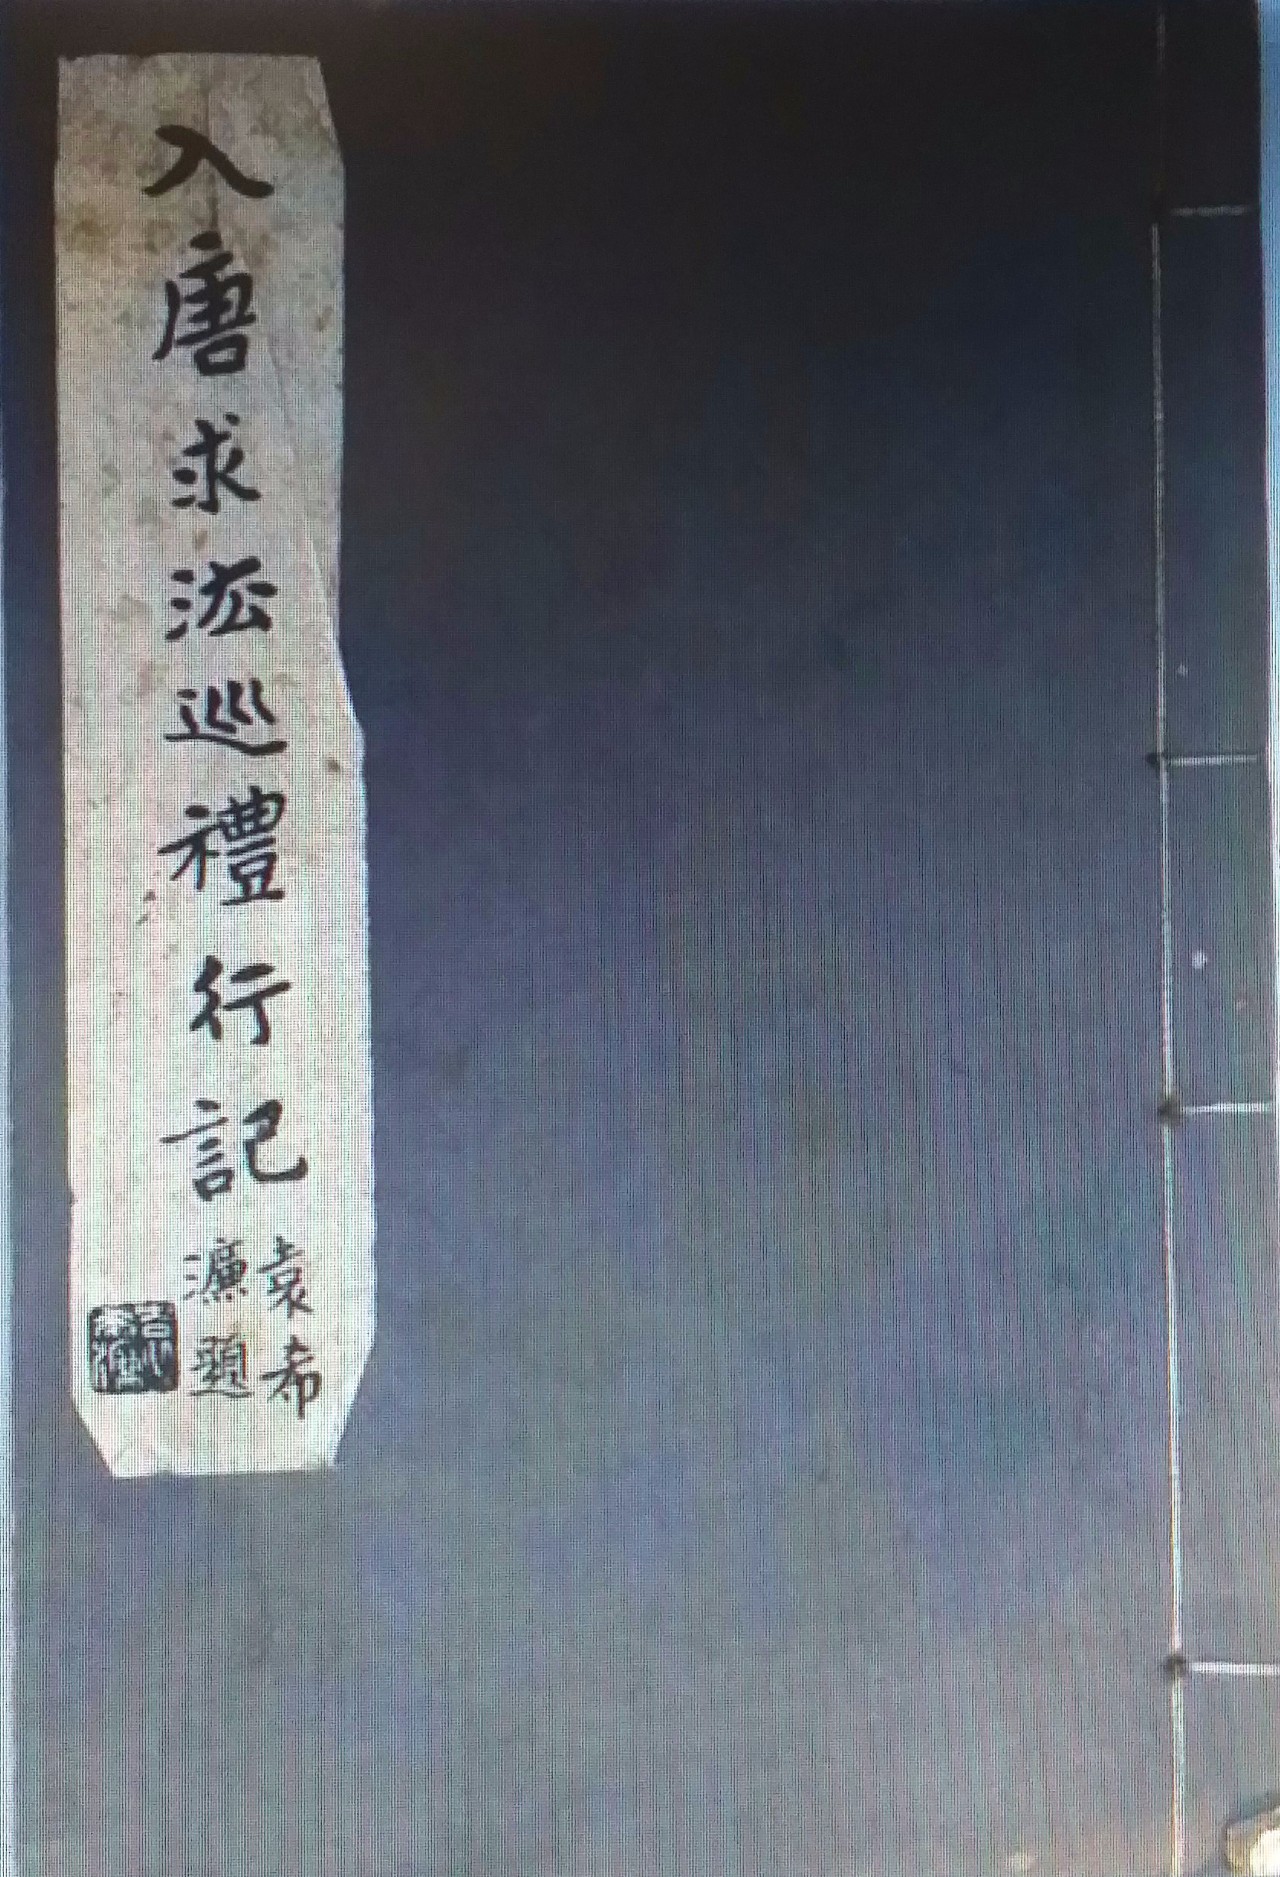 入唐求法巡禮行記
袁希
濂題